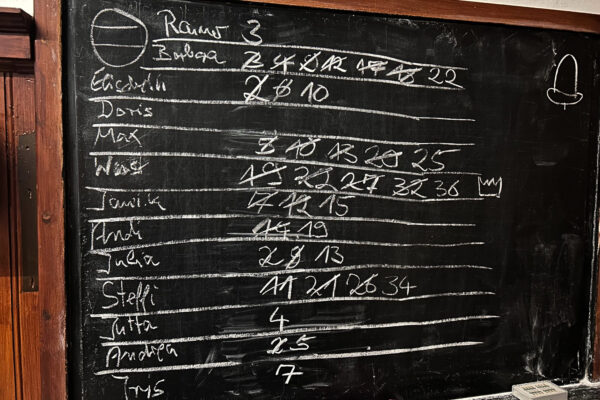 Rainer 3
Barbara 2 4 8 12 17 18 22
Elisabeth 2 8 10
Doris
Max 7 10 13 20 25
Horst 19 22 27 32 36
Jannik 7 12 15
Andi 14 19
Julia 2 8 13
Steffi 11 21 26 34
Jutta 4
Andrea 2 5
Irys 7